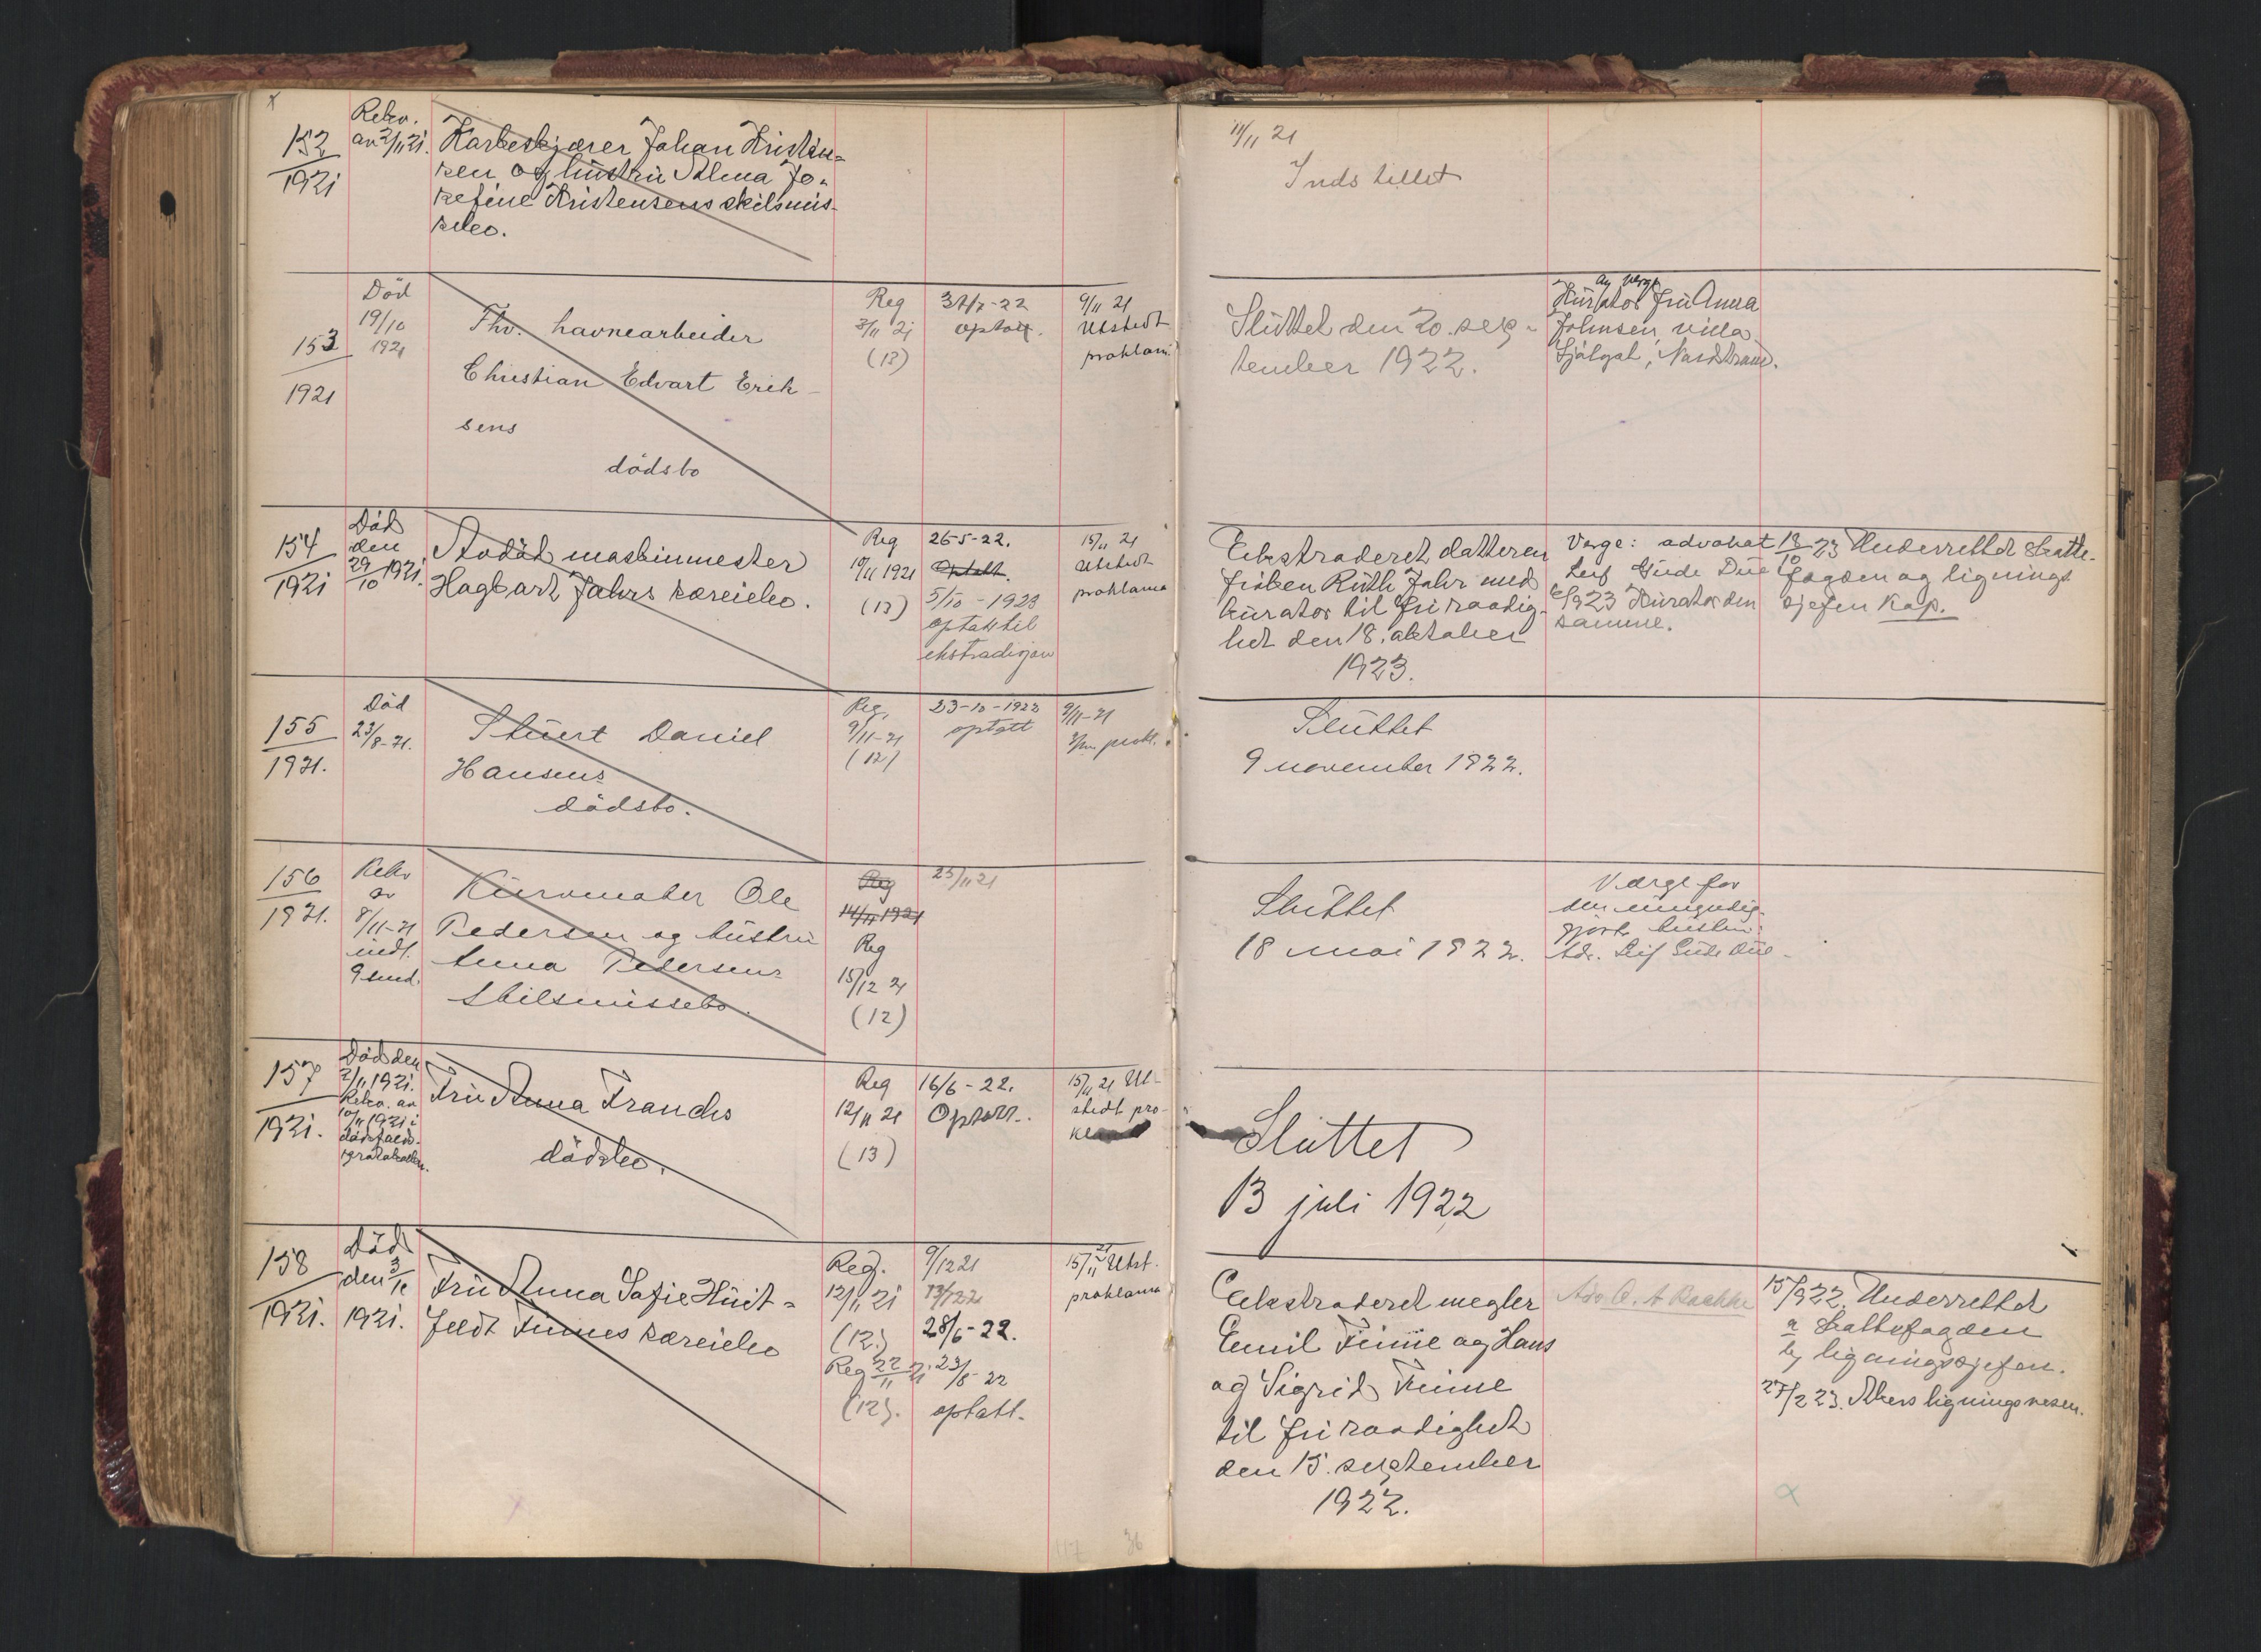 152
1921
Rekv.
av 2/11 21.
Karbeskjærer Johan Kristen-
sen og hustru Alma Jo-
sefine Kristensens skilsmis-
sebo.
11/11 21
Indstillet
153
1921
Död
19/10
1921
Fhv. havnearbeider
Christian Edvart Erik-
sens
dödsbo
Reg
3/11 21
(13)
31/7-22
optatt.
9/11 21
Utstedt
proklam.
Sluttet den 20. sep-
tember 1922.
Kurator fru Anna
Johnsen, villa
Nordstrand.
154
1921
Död
den
29/10 1921.
Avdöd maskinmester
Hagbart Jahrs særeiebo.
Reg
10/11 1921
(13)
26-5-22.
Optatt.
5/10-1923
optatt til
ekstradisjon
15/11 21
Utstedt
proklama
Ekstraderet datteren
fröken Ruth Jahr med
kurator til fri raadig-
het den 18. oktober
1923.
Verge: advokat
Leif Gude Due
6/9 23 Kurator den
samme.
18/10 23 Underrettet skatte-
fogden og lignings
sjefen Kap.
155
1921.
Död
23/8-21.
Stuert Daniel
Hansens
dödsbo.
Reg.
9/11-21
(12)
23-10-1922
optatt
9/11-21
prokl.
Sluttet
9 november 1922.
156
1921.
Rekv
av
8/11-21
indt.
9 smd.
Kurvmaker Ole
Pedersen og hustru
Anna Pedersens
skilsmissebo.
Reg
14/11 1921
Reg
15/12 21
(12)
25/11 21
Sluttet
18 mai 1922.
Værge for
den umyndig-
gjorte hustru:
Adv. Leif Gude Due.
157
1921.
Död den
2/11 1921.
Rekv. av
10/11 1921 i
dödsfalds-
protokollen.
Fru Anna Francks
dödsbo.
Reg
12/11 21
(13)
16/6-22.
Optatt.
15/11 21 Ut-
stedt pro-
Sluttet
13 juli 1922
158
1921.
Död
den 3/11
1921.
Fru Anna Sofie Huit-
feldt Finnes særeiebo
Reg.
12/11 21
(12.)
Reg 22/11 21.
(12).
9/12 21
13/1 22
28/6-22.
23/8-22
optatt.
15/11 21 Utst.
proklama
Ekstraderet megler
Emil Finne og Hans
og Sigrid Finne
til fri raadighet
den 15. september
1922.
15/9 22. Underrettet
a skattefogden
b, ligningssjefen.
27/2 23. Akers ligningsvesen.
117
36